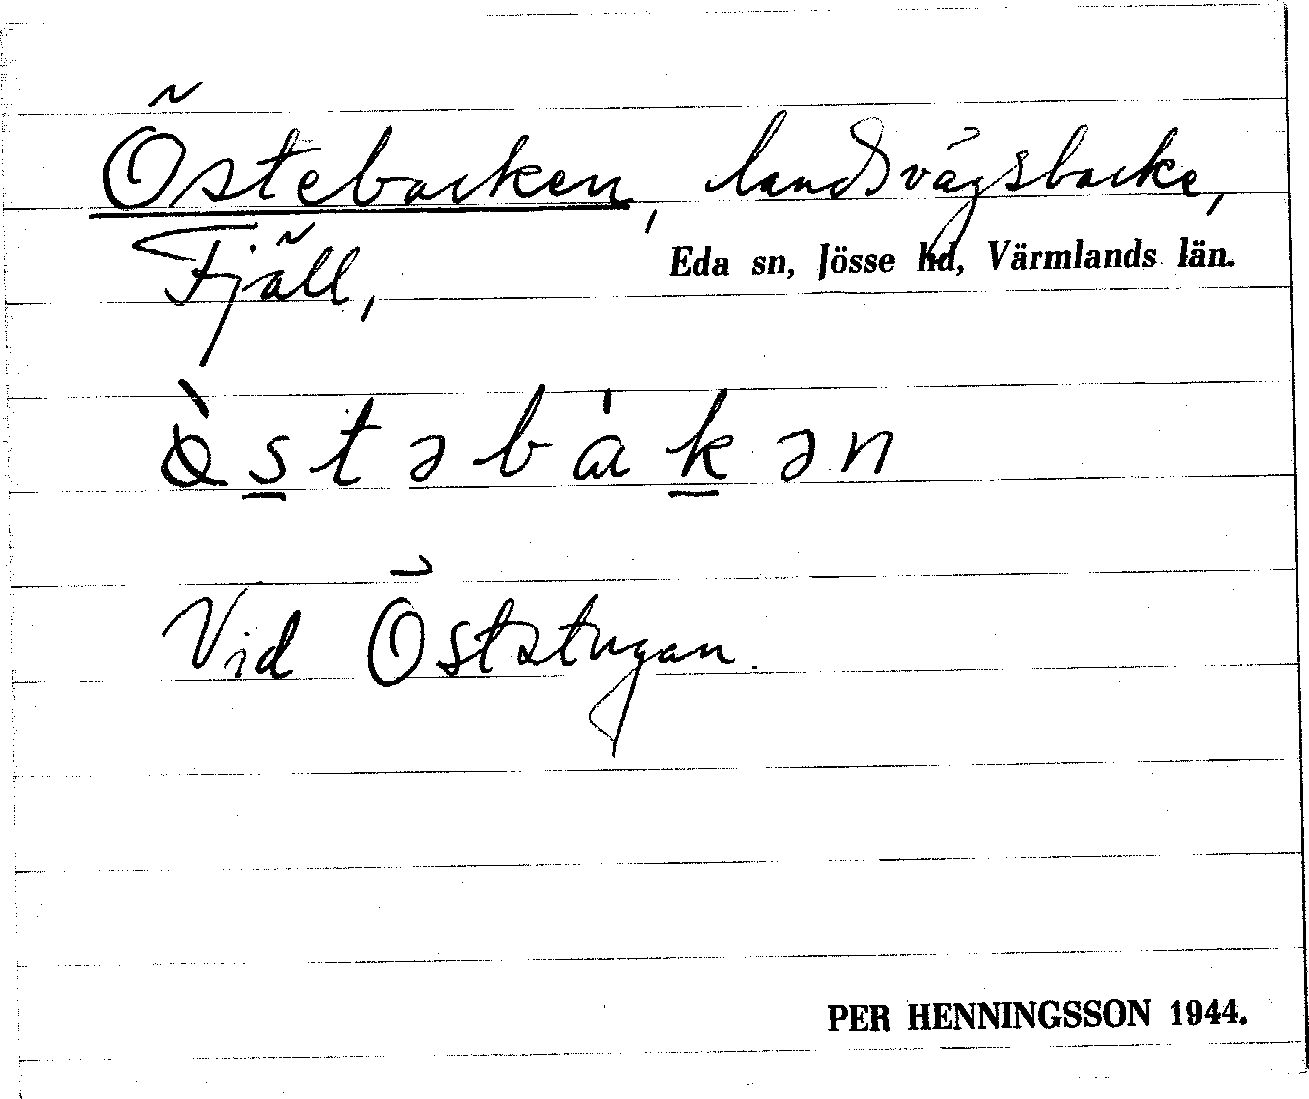 Östebacken, landsvägsbacke,
Fjäll, Eda sn, Jösse hd, Värmlands län.
ö̀s̲təbák̲ən
Vid Öststugan.
PER HENNINGSSON 1944.